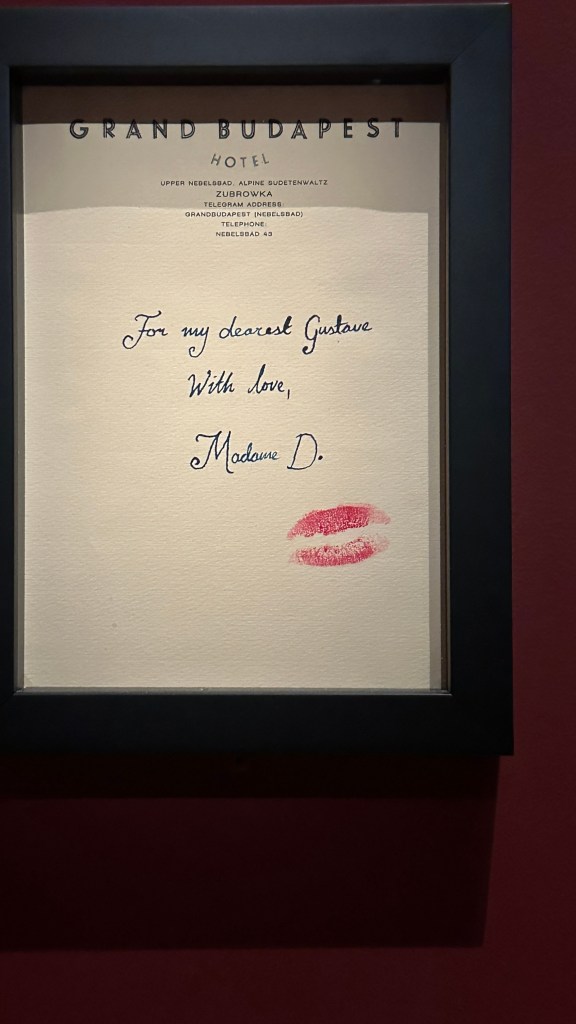 GRAND BUDAPEST
HOTEL
UPPER NEBELSBAD, ALPINE SUDETENWALTZ
ZUBROWKA
TELEGRAM ADDRESS:
GRANDBUDAPEST (NEBELSBAD)
TELEPHONE:
NEBELSBAD 43
For my dearest Gustave
With love,
Madame D.